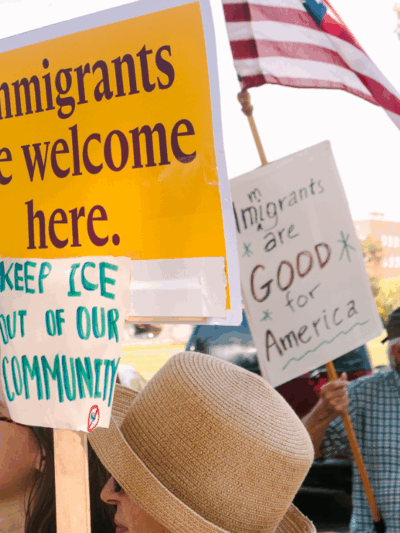 mmigrants
e welcome
here.
KEEP ICE
OUT OF OUR
COMMUNITY
Immigrants
are
GOOD
for
America